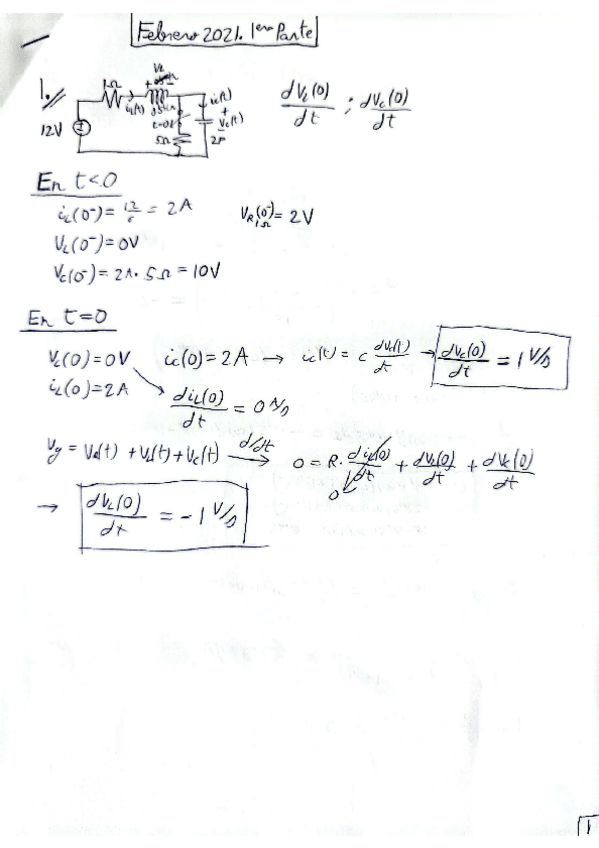 Febrero 2021. 1era Parte
1.
VL
+ -
1Ω
iL(t)
t=0
12V
5Ω
ic(t)
+
Vc(t)
-
2F
dVL(0)/dt ; dVc(0)/dt
En t<0
iL(0⁻) = 12/6 = 2A
VR1Ω(0⁻) = 2V
VL(0⁻) = 0V
Vc(0⁻) = 2A · 5Ω = 10V
En t=0
VL(0) = 0V ic(0) = 2A → ic(t) = C dVc(t)/dt → dVc(0)/dt = 1 V/s
iL(0) = 2A
diL(0)/dt = 0 A/s
Vg = VR(t) + VL(t) + Vc(t) d/dt → 0 = R · diL(0)/dt + dVL(0)/dt + dVc(0)/dt
0
→ dVL(0)/dt = -1 V/s
1